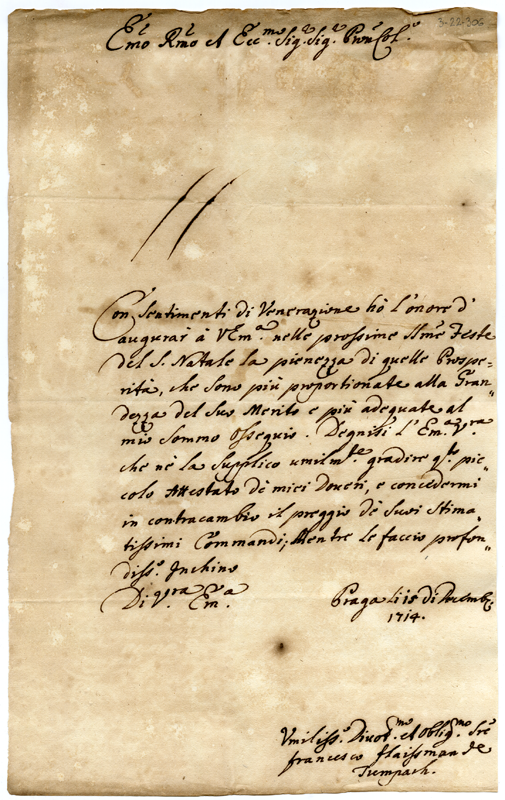 3-22-306
Em̃o Rm̃o et Ecc.mo Sig.r Sig.r Pron Col.o
Con Sentimenti di Venerazione hò l'onore d'
augurar à V Em.a nelle prossime Sme Feste
del S. Natale la pienezza di quelle Prospe=
rità, che sono più proportionate alla Gran=
dezza del Suo Merito e più adequate al
mio Sommo Ossequio. Degnisi l'Em.a V.ra
che nè la Supplico umilm.te gradire q.to pic=
colo Attestato de miei Doveri, e concedermi
in contracambio il preggio de Suoi Stima=
tissimi Commandi, Mentre le faccio profon=
diss.o Inchino
Di V.ra Em.a
Praga li 15 di Decembr.
1714.
Vmiliss.o Divot.mo et Oblig.mo Sre
francesco Flaissman de
Tumpach.